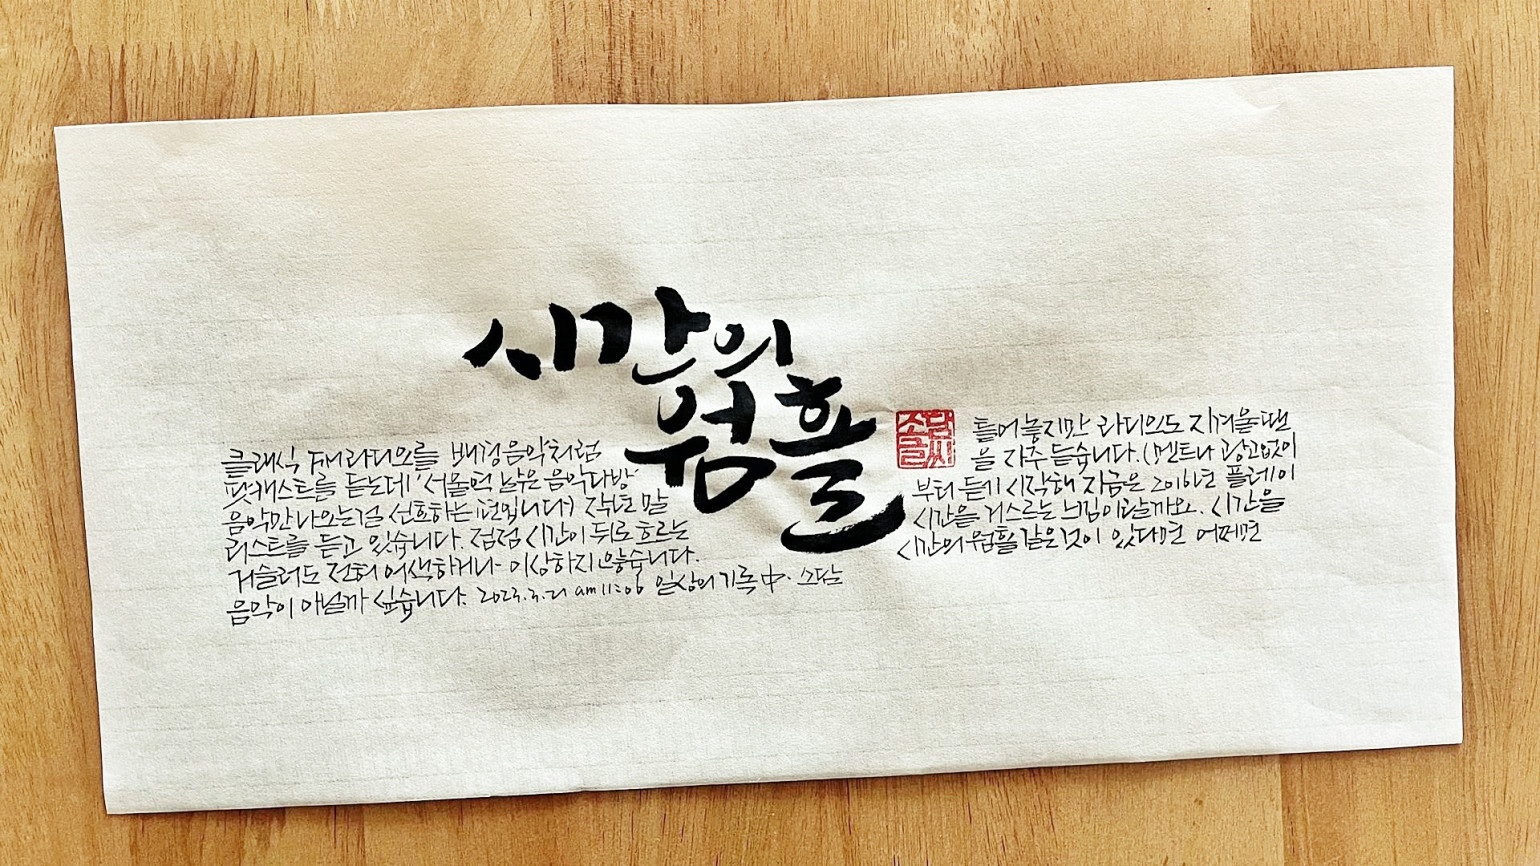 시간의
웜홀
소담
글씨
클래식 FM 라디오를 배경음악처럼 틀어놓지만 라디오도 지겨울땐
팟캐스트를 듣는데 '서울의 낡은 음악다방'을 자주 듣습니다. (멘트나 광고없이
음악만 나오는걸 선호하는 편입니다) 작년 말부터 듣기 시작해 지금은 2016년 플레이
리스트를 듣고 있습니다. 점점 시간이 뒤로 흐르는 시간을 거스르는 느낌이랄까요. 시간을
거슬러도 전혀 어색하거나 이상하지 않습니다. 시간의 웜홀 같은 것이 있다면 어쩌면
음악이 아닐까 싶습니다. 2023.3.21 am 11:06 일상의 기록 中. 소담